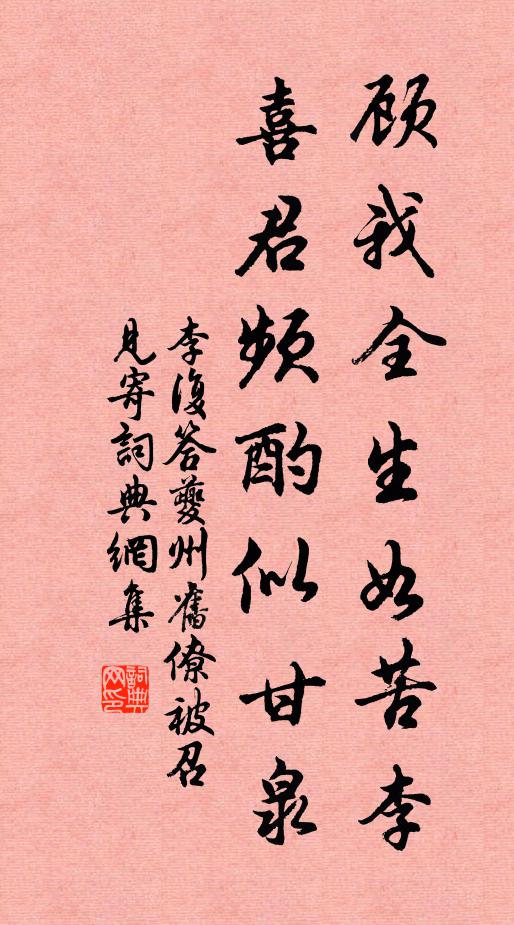 顾我全生如苦李
喜君频酌似甘泉
李復答夔州舊僚被召
見寄詞典網集
詞典
网印